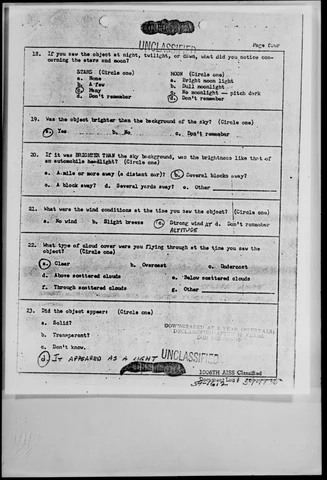 UNCLASSIFIED
Page four
18. If you saw the object at night, twilight, or dawn, what did you notice con-
cerning the stars and moon?
STARS (Circle one)
a. None
b. A few
c. Many
d. Don't remember
MOON (Circle one)
a. Bright moon light
b. Dull moonlight
c. No moonlight — pitch dark
d. Don't remember
19. Was the object brighter than the background of the sky? (Circle one)
a. Yes b. No c. Don't remember
20. If it was BRIGHTER THAN the sky background, was the brightness like that of
an automobile headlight? (Circle one)
a. A mile or more away (a distant car)? b. Several blocks away?
c. A block away? d. Several yards away? e. Other
21. What were the wind conditions at the time you saw the object? (Circle one)
a. No wind b. Slight breeze c. Strong wind d. Don't remember
ALTITUDE
22. What type of cloud cover were you flying through at the time you saw the
object? (Circle one)
a. Clear b. Overcast c. Undercast
d. Above scattered clouds e. Below scattered clouds
f. Through scattered clouds g. Other
23. Did the object appear: (Circle one)
a. Solid?
b. Transparent?
c. Don't know.
d. IT APPEARED AS A LIGHT
DOWNGRADED AT 3 YEAR INTERVALS;
DECLASSIFIED AFTER 12 YEARS.
DOD DIR 5200.10
UNCLASSIFIED
1006TH AISS Classified
Document Log #